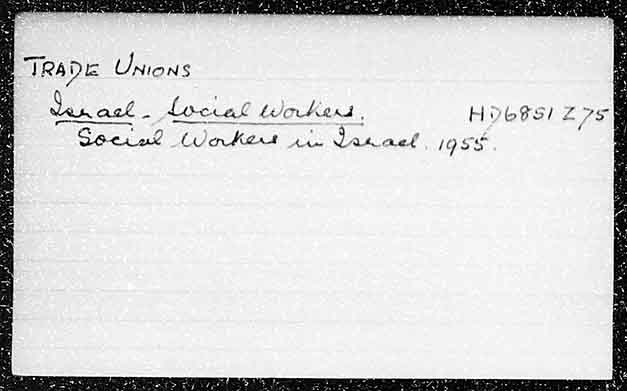 TRADE UNIONS
Israel - Social Workers. HD6851 Z75
Social Workers in Israel. 1955.